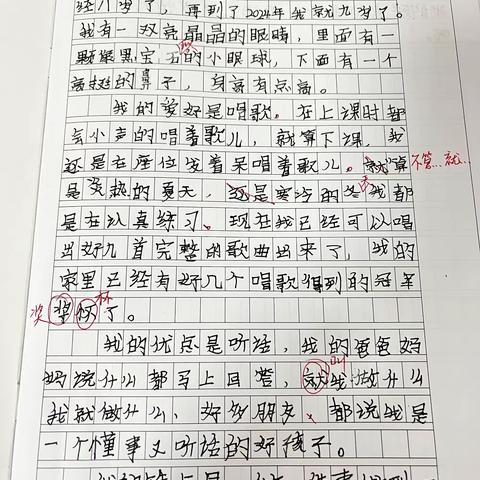 经八岁了，再到了2024年我就九岁了。
我有一双亮晶晶的眼睛，里面有一
颗像黑宝玉的小眼球，下面有一个
高挺的鼻子，身高有点高。
我的爱好是唱歌。在上课时都
会小声的唱着歌儿，就算下课，我
还是在座位发着呆唱着歌儿。就算 不管…就…
是炎热的夏天，还是寒冷的冬我都
是在认真练习。现在我已经可以唱
出好几首完整的歌曲出来了，我的
家里已经有好几个唱歌得到的冠军
奖杯了。 杯
我的优点是听话，我的爸爸妈
妈说什么都马上回答，就我做什么 叫
我就做什么、好多朋友、都说我是
一个懂事又听话的好孩子。